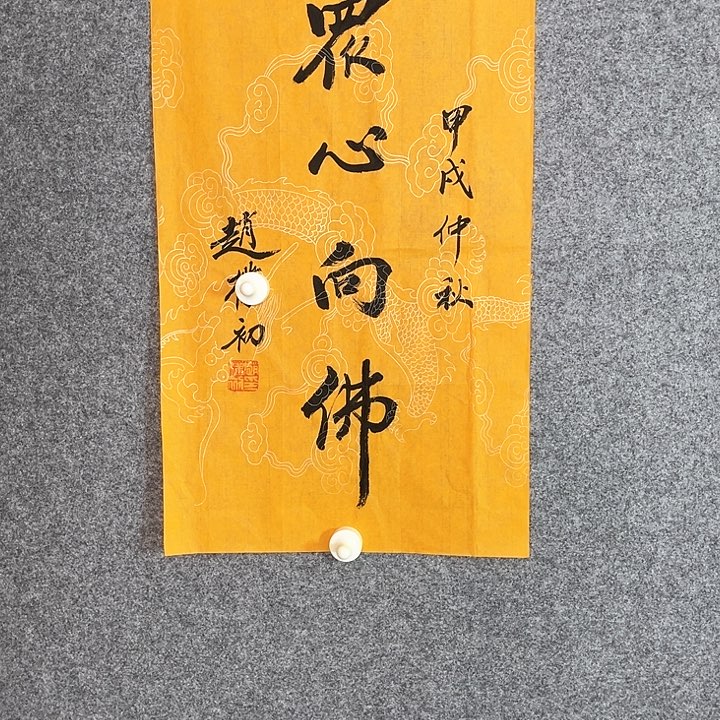 甲戌仲秋
眾心向佛
趙樸初